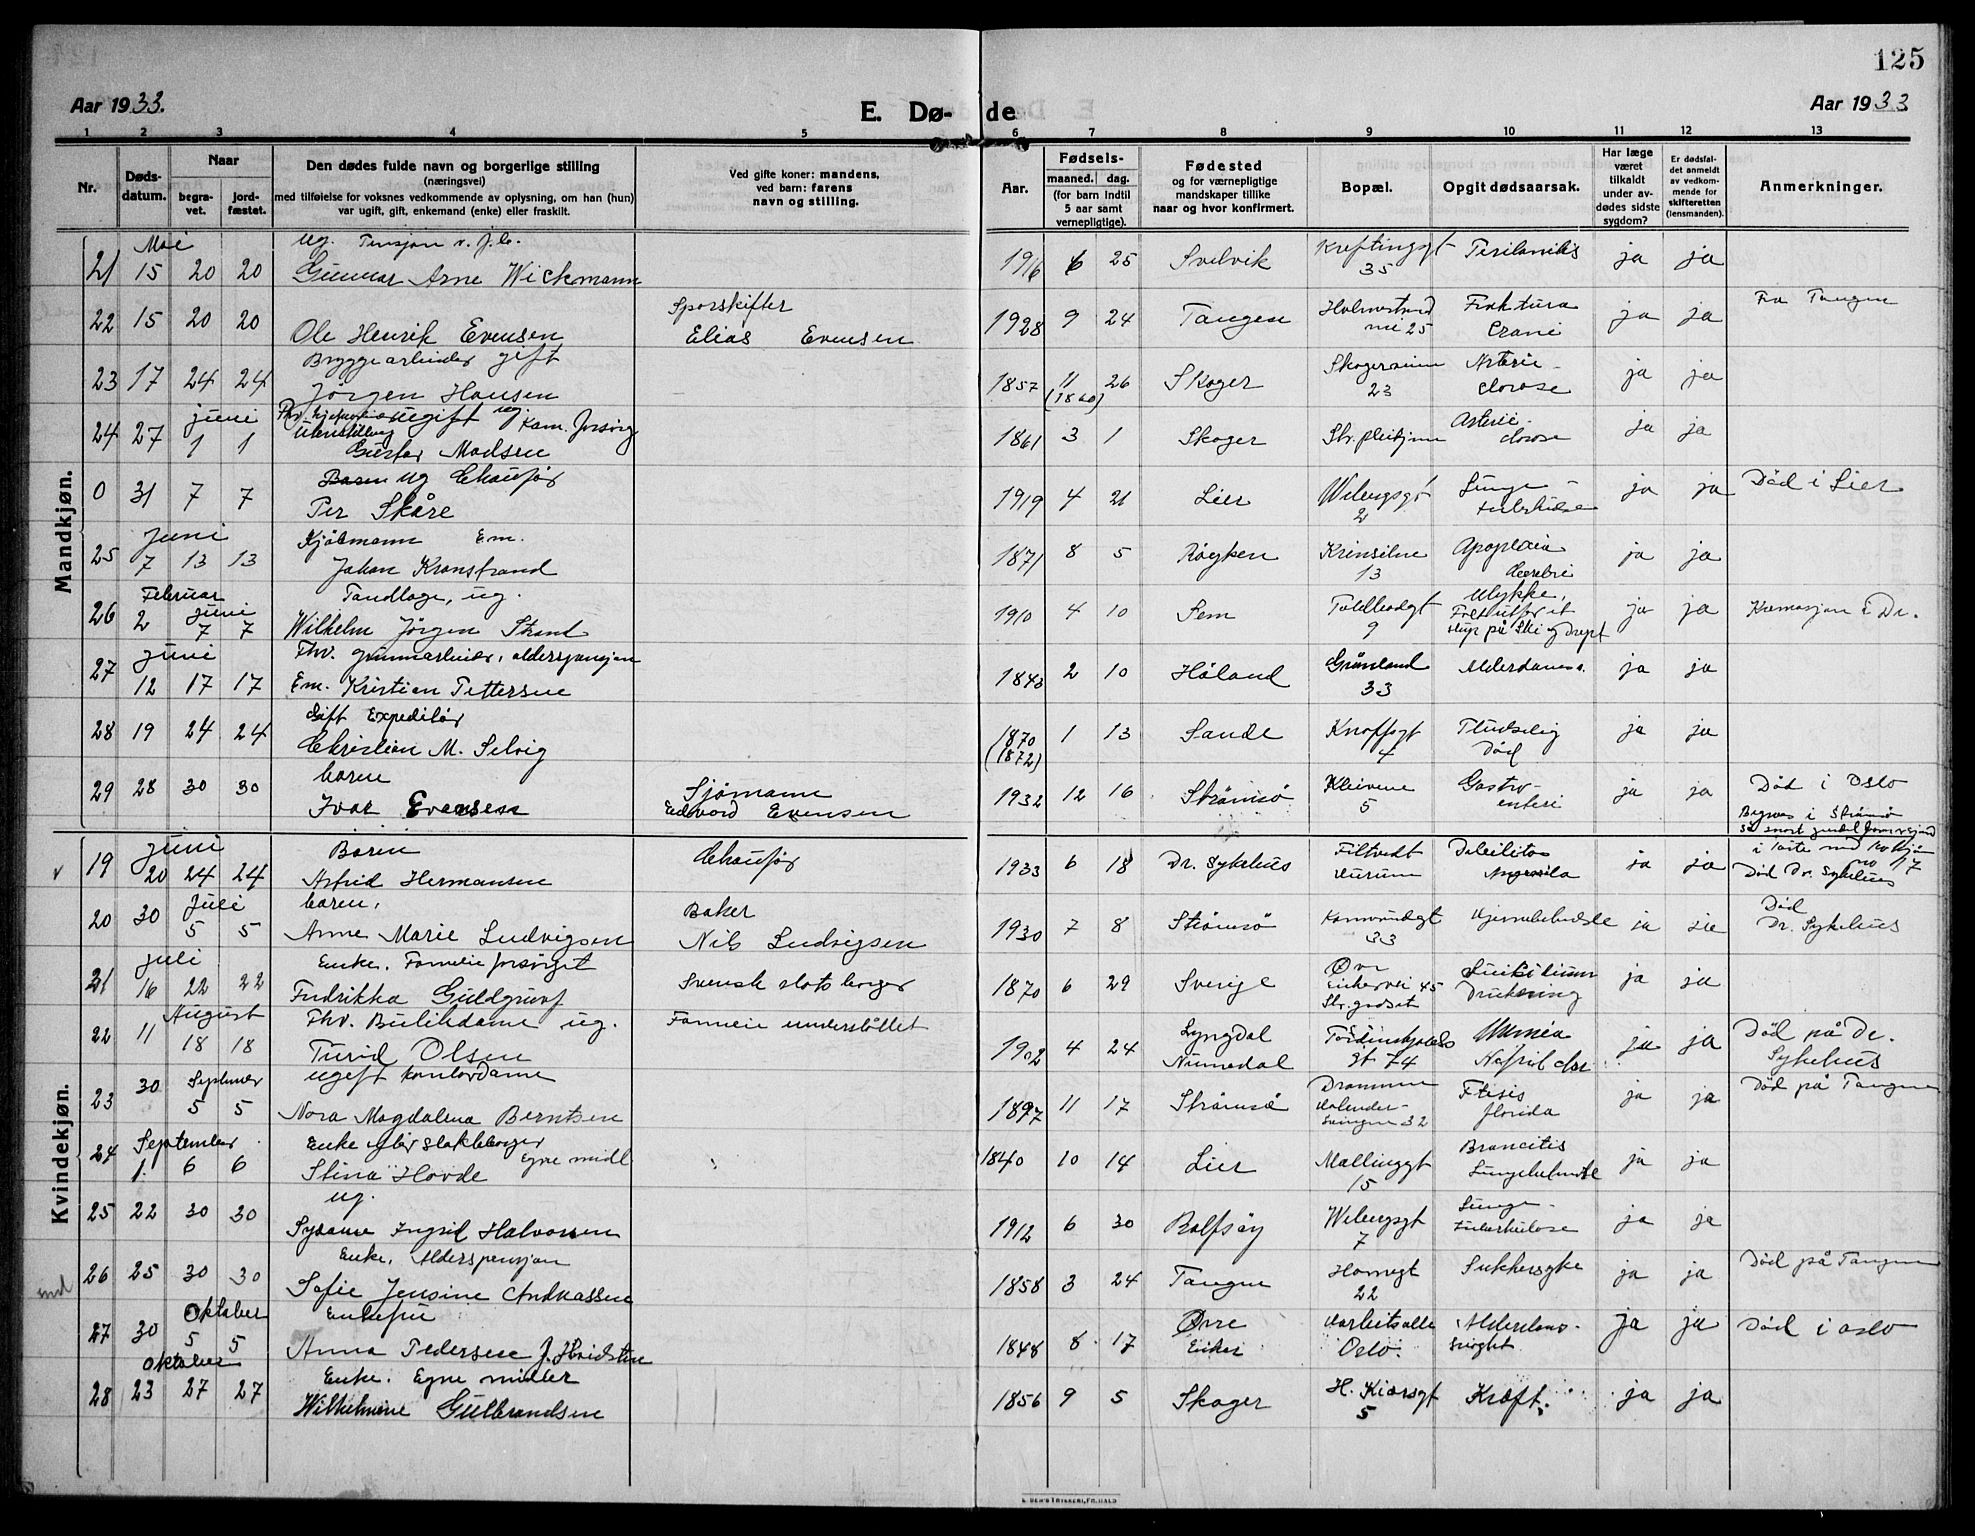 125
Aar 1933.
E. Dø-
de
Aar 1933
1 2 3 4 5 6 7 8 9 10 11 12 13
Nr.
Døds-
datum.
Naar
begra-
vet.
jord-
fæstet.
Den dødes fulde navn og borgerlige stilling
(næringsvei)
med tilføielse for voksnes vedkommende av oplysning, om han (hun)
var ugift, gift, enkemand (enke) eller fraskilt.
Ved gifte koner: mandens,
ved barn: farens
navn og stilling.
Aar.
Fødsels-
maaned. dag.
(for barn indtil
5 aar samt
vernepligtige).
Fødested
og for værnepligtige
mandskaper tillike
naar og hvor konfirmert.
Bopæl.
Opgit dødsaarsak.
Har læge
været
tilkaldt
under av-
dødes sidste
sygdom?
Er dødsfal-
det anmeldt
av vedkom-
mende for
skifteretten
(lensmanden).
Anmerkninger.
Mandkjøn.
Mai
21 15 20 20
ug.
Gunnar Arne Wickmann
1916 6 25 Svelvik
35
ja ja
22 15 20 20
Ole Henrik Evensen
Sporskifter
Elias Evensen
1928 9 24 Tangen
25
Fraktura
Cranii
ja ja
Fra Tangen
23 17 24 24
Bryggearbeider gift
Jørgen Hansen
1857 11 26 Skoger
(1860)
23
ja ja
juni
24 27 1 1
ugift
Gustav Madsen
1861 3 1 Skoger
ja ja
0 31 7 7
ug Chaufør
Per Skåre
1919 4 21 Lier
2
Lunge-
ja ja
Død i Lier
Juni
25 7 13 13
Kjøbmann Em.
Johan Kronstrand
1871 8 5 Røyken
13
Apoplexia
ja ja
Februar
26 2 Juni 7 7
Tandlæge, ug.
Wilhelm Jørgen Strand
1910 4 10 Sem
9
Ulykke,
stup på Ski og drept
ja ja
Juni
27 12 17 17
Fhv. alderspensjon
Em. Kristian Pettersen
1843 2 10 Høland
Grønland
33
ja ja
28 19 24 24
Gift Expeditør
Christian M. Selvig
1870 1 13 Sande
(1872)
Knoffsgt
4
Pludselig
Død
ja ja
29 28 30 30
barn
Ivar Evensen
Sjømann
Edvard Evensen
1932 12 16 Strømsø
Kleivene
5
Gastro-
enteri
ja ja
Død i Oslo
Kvindekjøn.
Juni
19 20 24 24
Barn
Astrid Hermansen
Chaufør
1933 6 18 Dr. Sykehus
Filtvedt
Hurum
Debilitas
ja ja
Død Dr. Sykehus
Juli
20 30 5 5
barn,
Anne Marie Ludvigsen
Baker
Nils Ludvigsen
1930 7 8 Strømsø
33
ja ja
Død
Dr. Sykehus
juli
21 16 22 22
Enke. forsørget
Fredrikka Guldgruv
Svensk statsborger
1870 6 29 Sverige
Øvre
Eikervei 45
Str. godset
Drukning
ja ja
August
22 11 18 18
Fhv. ug.
Turid Olsen
understøttet
1902 4 24
Lyngdal
Numedal
gt 74
ja ja
Død på Dr.
Sykehus
September
23 30 5 5
ugift kontordame
Nora Magdalena Berntsen
1897 11 17 Strømsø
Drammen
32
Ftisis
florida
ja ja
Død på Tangen
September
24 1. 6 6
Enke
Egne midl
Stina Hovde
1840 10 14 Lier
15
ja ja
25 22 30 30
ug.
Ingrid Halvorsen
1912 6 30 Rolfsøy
7
Lunge-
tuberkulose
ja ja
26 25 30 30
Enke. Alderspensjon
Sofie Jensine Andreassen
1858 3 24 Tangen
22
Sukkersyke
ja ja
Død på Tangen
Oktober
27 30 5 5
Enkefru
Anna Pedersen
1848 8 17
Øvre
Eiker
Oslo.
ja ja
Død i Oslo
Oktober
28 23 27 27
Enke. Egne midler
Wilhelmine Gulbrandsen
1856 9 5 Skoger
H. Kiærsgt
5
Kræft.
ja ja